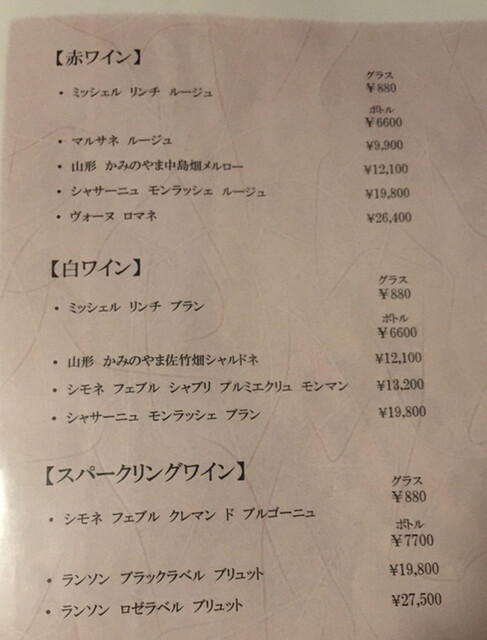 【赤ワイン】
グラス
・ミッシェル リンチ ルージュ ￥880
ボトル
￥6600
・マルサネ ルージュ ¥9,900
・山形 かみのやま中島畑メルロー ¥12,100
・シャサーニュ モンラッシェ ルージュ ¥19,800
・ヴォーヌ ロマネ ¥26,400
【白ワイン】
グラス
￥880
・ミッシェル リンチ ブラン
ボトル
￥6600
・山形 かみのやま佐竹畑シャルドネ ¥12,100
・シモネ フェブル シャブリ プルミエクリュ モンマン ¥13,200
・シャサーニュ モンラッシェ ブラン ¥19,800
【スパークリングワイン】
グラス
￥880
・シモネ フェブル クレマン ド ブルゴーニュ
ボトル
￥7700
・ランソン ブラックラベル ブリュット ¥19,800
・ランソン ロゼラベル ブリュット ¥27,500